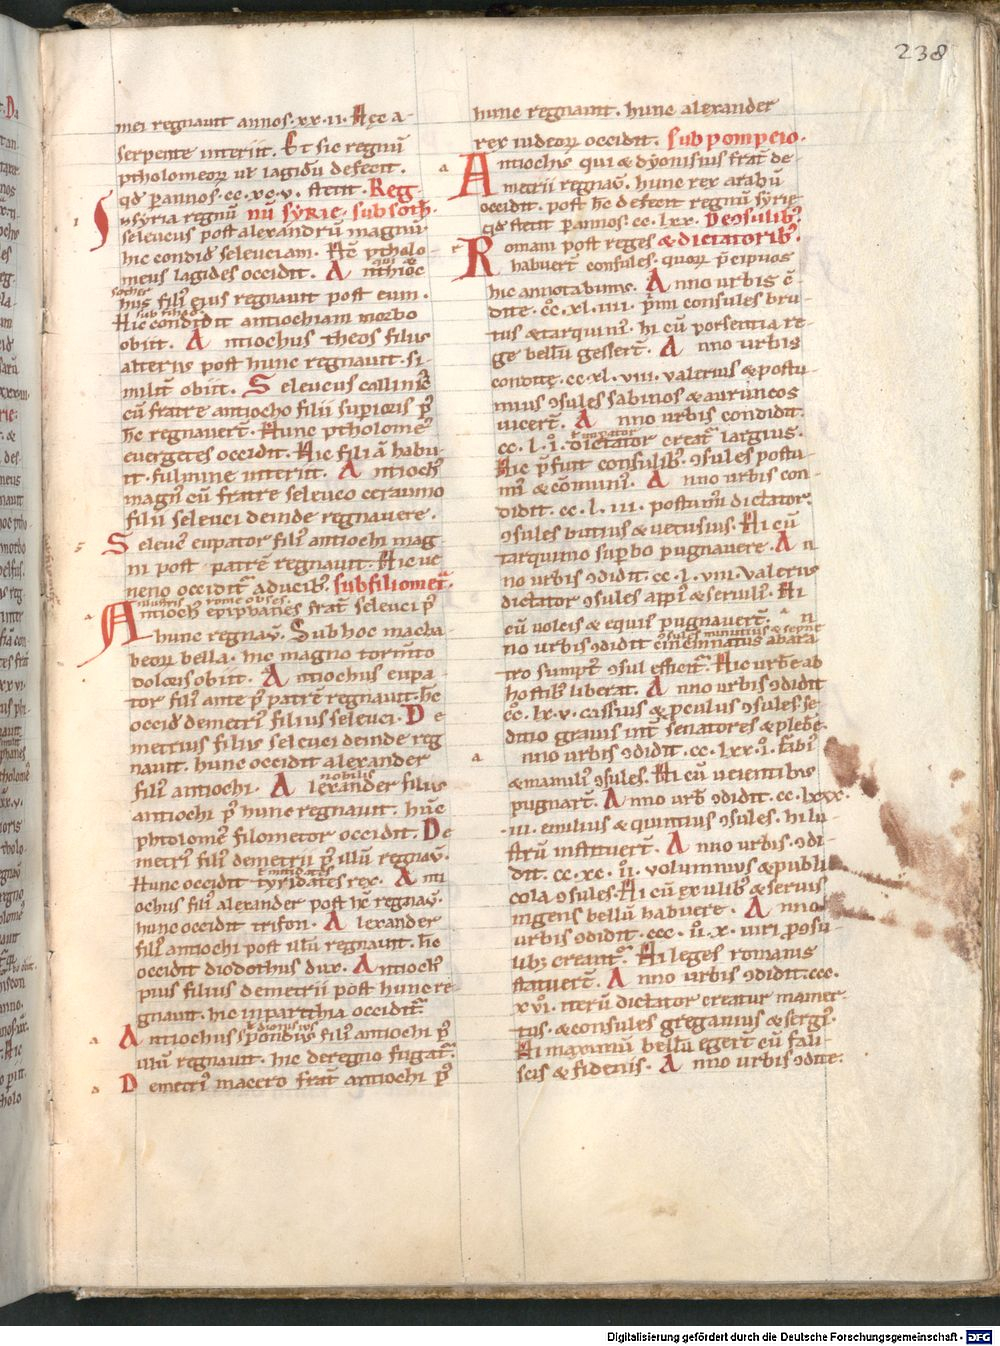 238
mei regnauit annos .xx.ii. Hęc a
serpente interiit. Et sic regnū
ptholomeoꝝ ul' lagidū defecit.
qd' p annos .cc.xc.v. stetit. Reg
In syria regnū nū syrie. sub soth.
seleucus post alexandrū magnū
hic condid' seleuciam. Hc̄ ptholo
meus lagides occidit. A nthioc
hus fili' eius regnauit post eum.
Hic condidit antiochiam morbo
obiit. A ntiochus theos filius
alterius post hunc regnauit. si
milit̄ obiit. S eleucus callinic'
cū fratre antiocho filii supioris p'
hc̄ regnauert̄. Hunc ptholome'
euergetes occidit. Hic filiā habu
it. fulmine interiit. A ntioch'
magn' cū fratre seleuco cerauno
filii seleuci deinde regnauere.
S eleuc' eupator fili' antiochi mag
ni post patrē regnauit. Hic ue
neno occidit' a ducib'. sub filiomet'.
A ntioch' epiphanes frat' seleuci p'
hunc regnav̄. Sub hoc macha
beoꝝ bella. hic magno torm̄to
doloris obiit. A ntiochus eupa
tor fili' ante p' patrē regnauit. hc̄
occid' demetri' filius seleuci. D e
metrius filius seleuci deinde reg
nauit. hunc occidit alexander
fili' antiochi. A lexander filius
nobilis
antiochi p' hunc regnauit. hūc
phtolome' filometor occidit. D e
metri' fili' demetrii p' illū regnav̄.
Hunc occidit tyridates rex. A nti
ochus fili' alexander post hc̄ regnav̄.
hunc occidit trifon. A lexander
fili' antiochi post illū regnauit. hc̄
occidit diodothus dux. A ntioch'
pius filius demetrii post hunc re
gnauit. hic in parthia occidit'.
A ntiochus spondius fili' antiochi p'
illū regnauit. hic de regno fugat'.
D emetri' macero frat' antiochi p'
hunc regnauit. hunc alexander
rex iudeoꝝ occidit. sub pompeio.
A ntiochus qui & dyonisius frat' de
metrii regnav̄. hunc rex arabū
occidit. post hc̄ defecit regnū syrię
qd' stetit p annos .cc.lxx. De ꝯsulib'
R omani post reges & dictatorib'.
habuert̄ consules. quoꝝ p'cipuos
hic annotabimus. A nno urbis c̄
dite .cc.xl.iiii. p'mi consules bru
tus & tarquini'. hi cū porsenna re
ge bellū gessert̄. A nno urbis
conditę .cc.xl.viii. ualerius & postu
mius ꝯsules sabinos & auruncos
uicert̄. A nno urbis condidit.
cc.l.i. dictator creat' largius.
Hic p'fuit consulib'. ꝯsules postu
mi' & cōmuni'. A nno urbis con
didit .cc.l.iii. postumi' dictator.
ꝯsules butius & uetusius. Hi cū
tarquino supbo pugnauere. A n
no urbis ꝯdidit .cc.l.viii. Valerius
dictator ꝯsules appi' & seruili'. Hi
cū uolcis & equis pugnauert̄. A n
no urbis ꝯdidit cincinnatus ab ara
ꝯsules minutius &
tro sumpt' ꝯsul efficit'. Hic urbē ab
hostib' liberat. A nno urbis ꝯdidit
cc.lx.v. cassius & pculus ꝯsules. se
ditio grauis int' senatores & plebē.
nno urbis ꝯdidit .cc.lxx.i. fabi'
& manuli' ꝯsules. Hi cū ueientibus
pugnart̄. A nno urb' ꝯdidit .cc.lxxx.
.iii. emilius & quintius ꝯsules. hi lu
strū instituert̄. A nno urbis .ꝯdi
dit .cc.xc.ii. uolumnius & publi
cola ꝯsules. Hi cū exulib' & seruis
ingens bellū habuere. A nno
urbis ꝯdidit .ccc.ii. x. uiri p ꝯsu
lib; creant'. Hi leges romanis
statuert̄. A nno urbis ꝯdidit .ccc.
xvi. iterū dictator creatur mamer
tus. & consules greganius & sergi'.
Hi maximū bellū egert cū fali
scis & fidenis. A nno urbis ꝯdite.
Digitalisierung gefördert durch die Deutsche Forschungsgemeinschaft - DFG